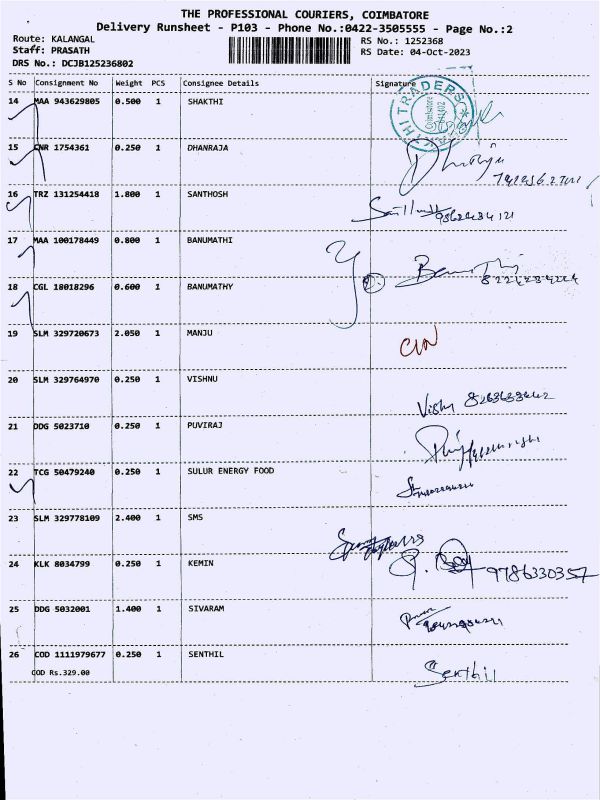 THE PROFESSIONAL COURIERS, COIMBATORE
Delivery Runsheet - P103 - Phone No.:0422-3505555 - Page No.:2
Route: KALANGAL
Staff: PRASATH
DRS No.: DCJB125236802
RS No.: 1252368
RS Date: 04-Oct-2023
S No Consignment No Weight PCS Consignee Details Signature
14 MAA 943629805 0.500 1 SHAKTHI
TRADERS
Coimbatore
15 CNR 1754361 0.250 1 DHANRAJA
16 TRZ 131254418 1.800 1 SANTHOSH
17 MAA 100178449 0.800 1 BANUMATHI
18 CGL 18018296 0.600 1 BANUMATHY
19 SLM 329720673 2.050 1 MANJU
20 SLM 329764970 0.250 1 VISHNU
21 DDG 5023710 0.250 1 PUVIRAJ
22 TCG 50479240 0.250 1 SULUR ENERGY FOOD
23 SLM 329778109 2.400 1 SMS
24 KLK 8034799 0.250 1 KEMIN
9786330357
25 DDG 5032001 1.400 1 SIVARAM
26 COD 1111979677 0.250 1 SENTHIL
COD Rs.329.00
Senthil